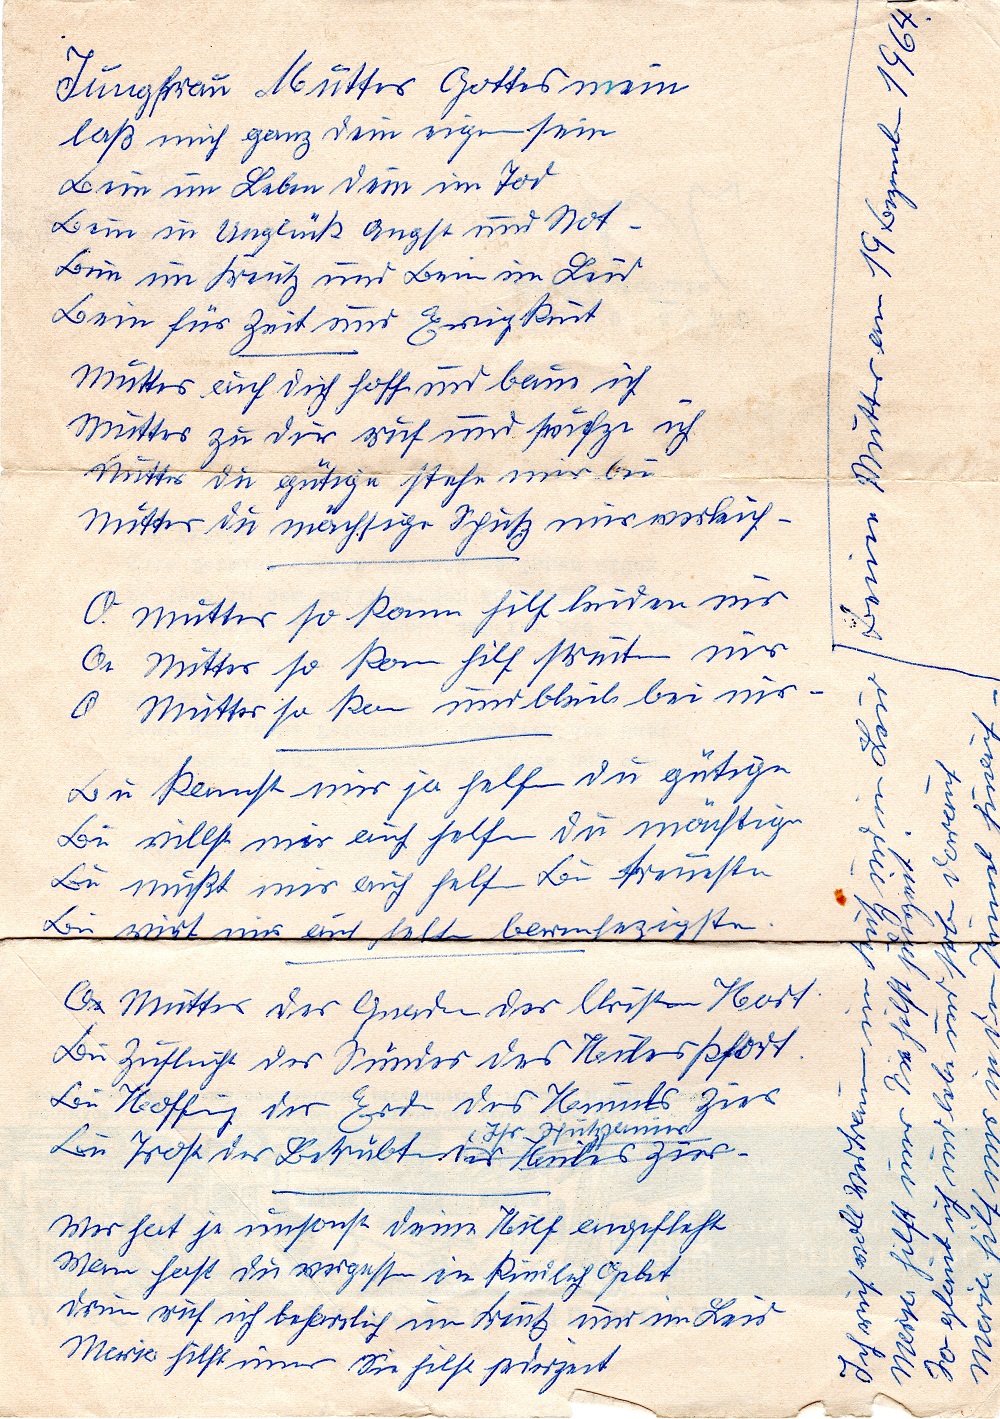 Jungfrau Mutter Gottes mein
laß mich ganz dein eigen sein
Dein im Leben dein im Tod
Dein in Unglück Angst und Not -
Dein im Kreutz und Dein im Leid
Dein für Zeit und Ewigkeit
Mutter auf dich hoff und baue ich
Mutter zu dir ruf und seufze ich
Mutter du gütige stehe mir bei
Mutter du mächtige Schutz mir verleih -
O Mutter so komm hilf leiden mir
O Mutter so kom hilf streiten mir
O Mutter so kom und bleib bei mir -
Du kannst mir ja helfen du gütige
Du willst mir auch helfen du mächtige
Du mußt mir auch helfen Du treueste
Du wirst mir auch helfen barmhezigste.
O Mutter der Gnaden der Christen Hort.
Du Zuflucht der Sünder des Heiles Pfort.
Du Hoffnung der Erde des Himmels Zier
Ihr Schutzpanier
Du Trost der Betrübten des Heiles Zier -
Wer hat je umsonst deine Hilf angefleht
Wann hast du vergessen ein kindlich Gebet
drum ruf ich beharrlich im Kreutz und im Leid
Maria hilft immer Sie hilft jederzeit
Ich ruf voll Vertrauen im Leiden und Tod
Maria hilft immer in jeglicher Not
So glaub ich und lebe und sterbe darauf
Maria hilft mir in den Himmel hinauf -
Deine Mutter am 19 Dezember 1964.